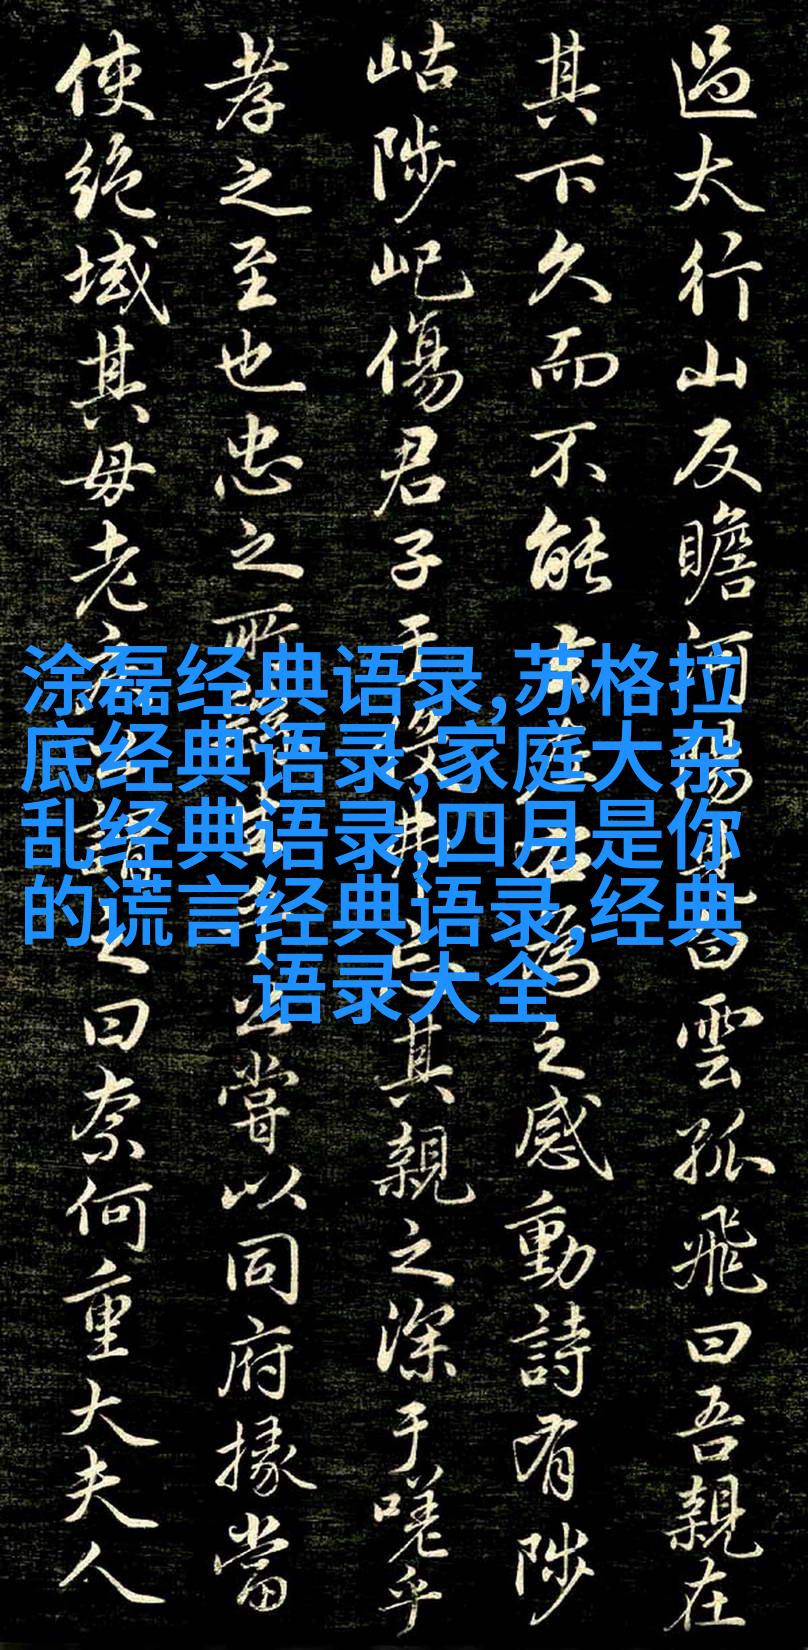 過太行山反瞻河陽見白雲孤飛曰吾親在
其下久而不能去左右為之感動詩有陟
岵陟屺傷君子于役弗忘其親之深于嗟乎
孝之至也忠之所生公嘗以同府掾當
使絕域其母老疾謂之曰奈何重大夫人
涂磊经典语录,苏格拉
底经典语录,家庭大杂
乱经典语录,四月是你
的谎言经典语录,经典
语录大全